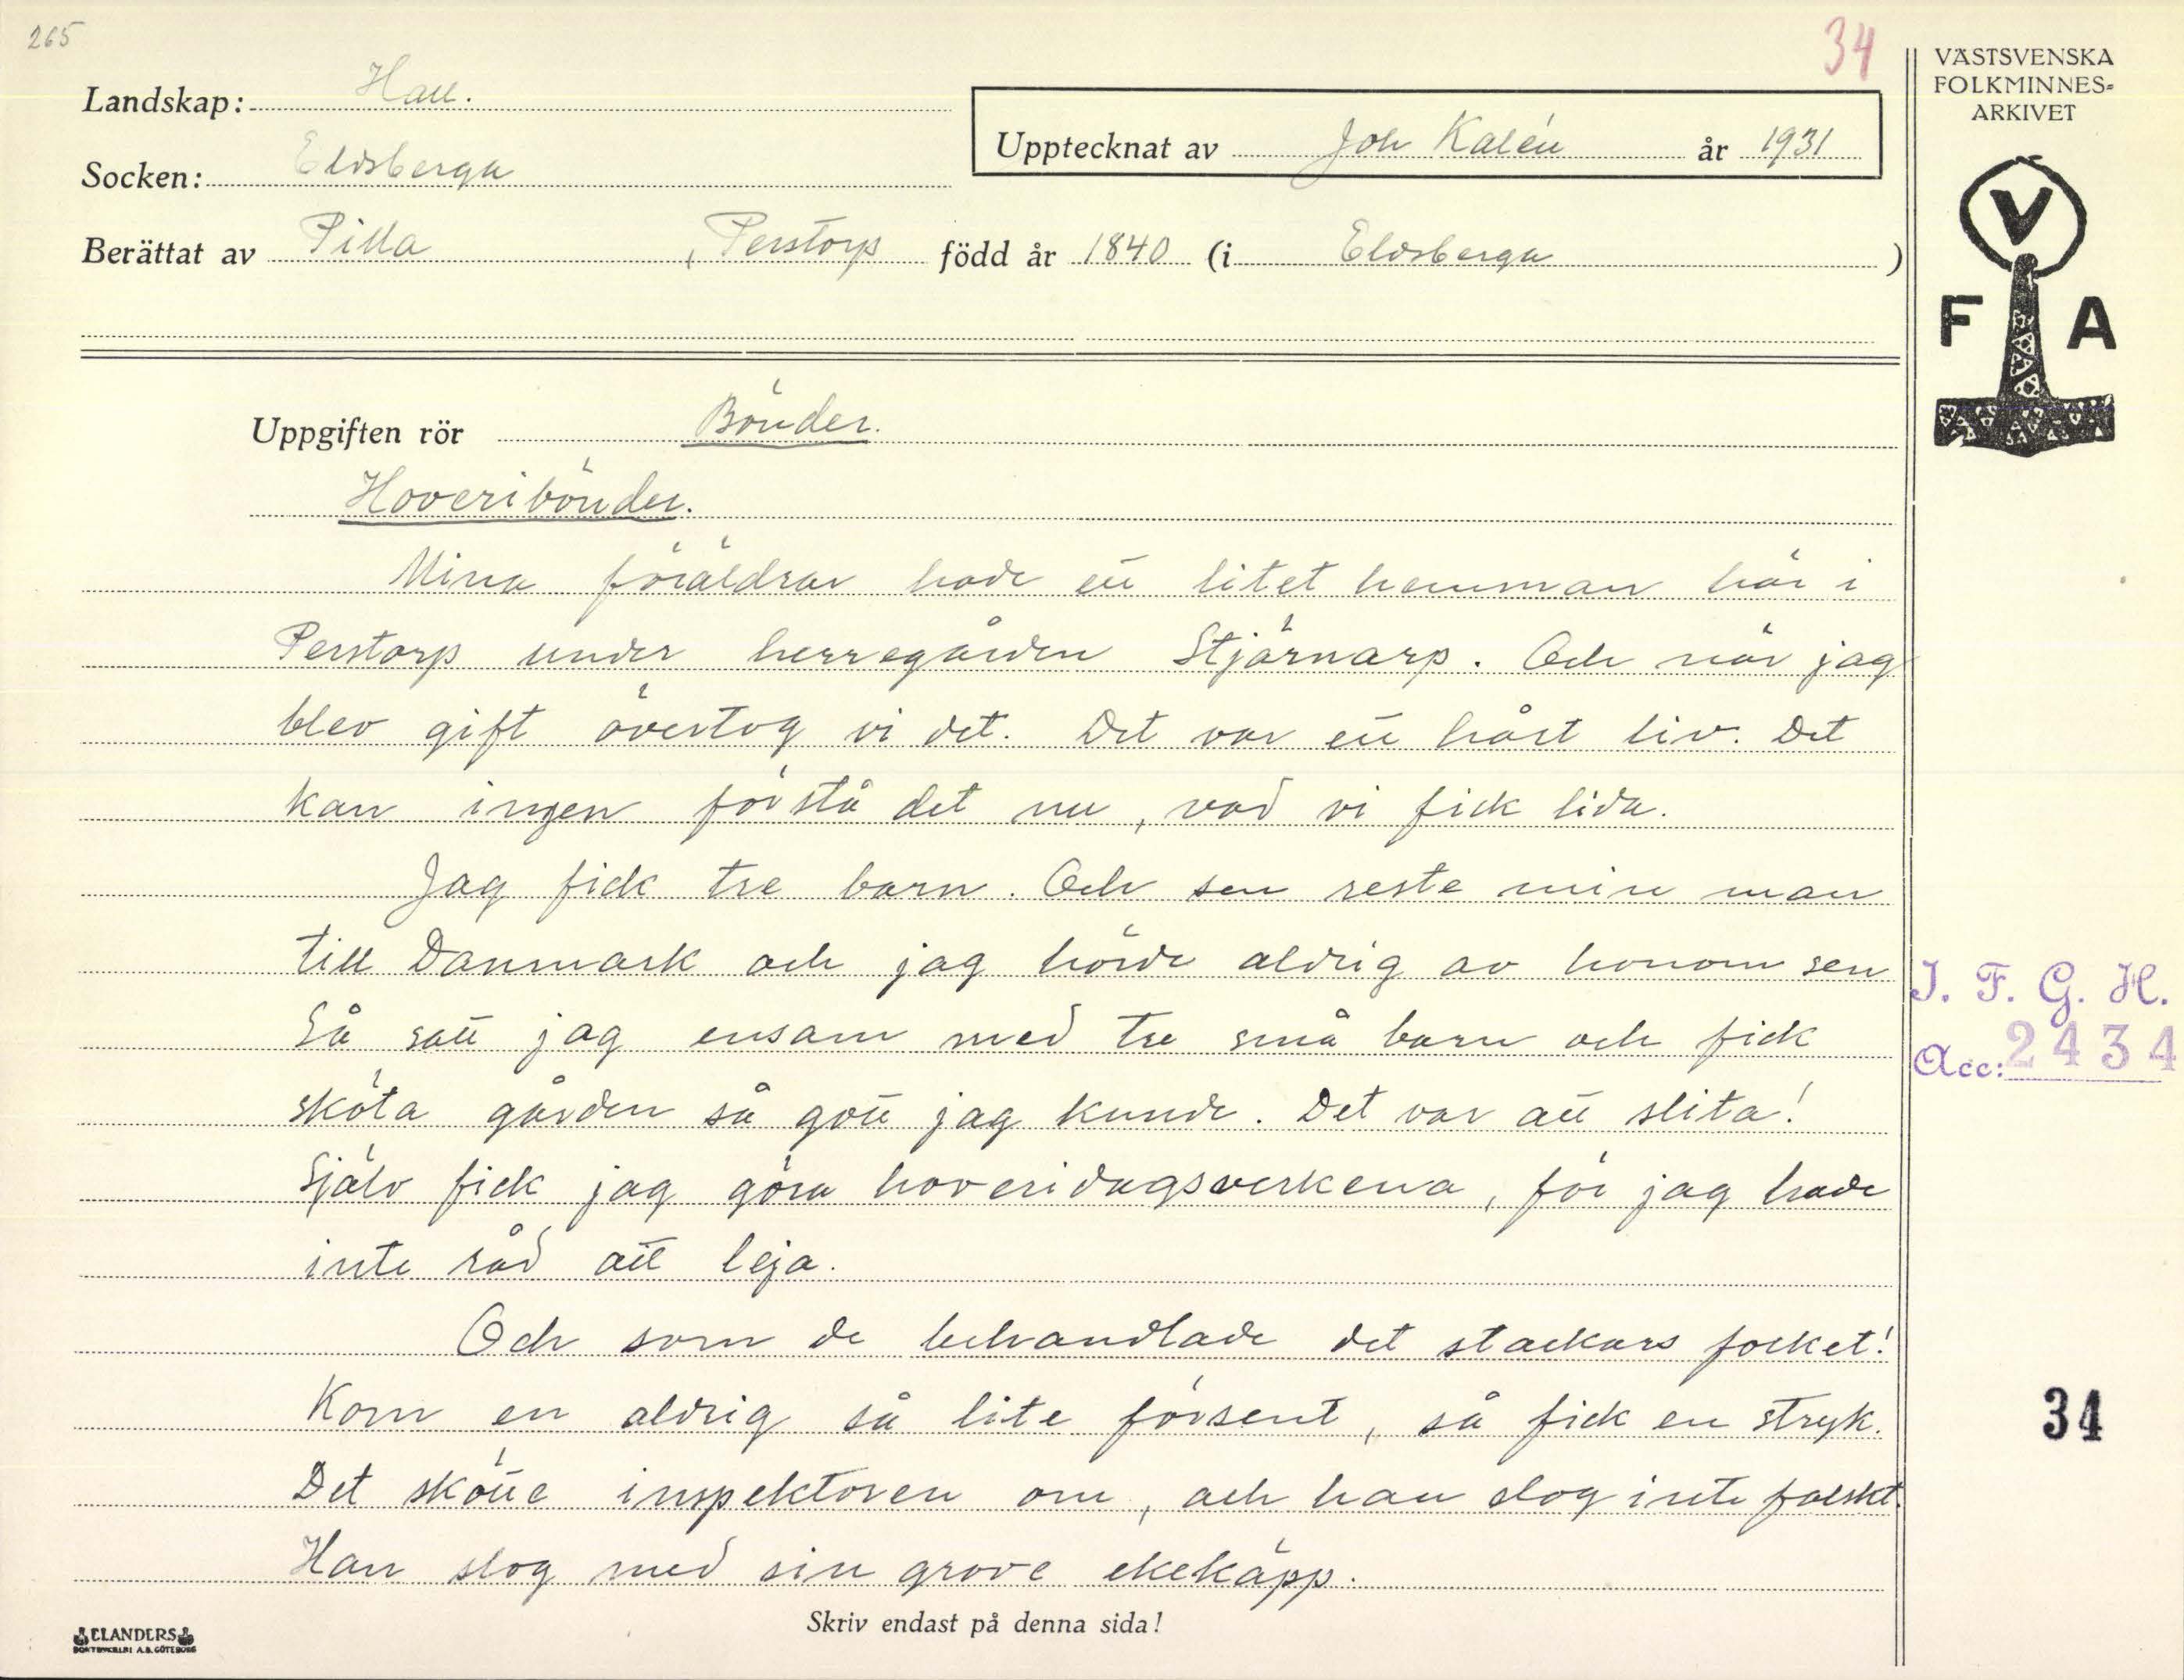 265
34
Landskap: Hall.
Socken: Eldsberga
Upptecknat av Joh Kalén år 1931
Berättat av Pilla, Perstorp född år 1840 (i Eldsberga)
VÄSTSVENSKA
FOLKMINNES-
ARKIVET
V
F A
Uppgiften rör Bönder.
Hoveribönder.
Mina föräldrar hade ett litet hemman här i
Perstorp under herregården Stjärnarp. Och när jag
blev gift övertog vi det. Det var ett hårt liv. Det
kan ingen förstå det nu, vad vi fick lida.
Jag fick tre barn. Och sen reste min man
till Danmark och jag hörde aldrig av honom sen
Så satt jag ensam med tre små barn och fick
sköta gården så gott jag kunde. Det var att slita!
Själv fick jag göra hoveridagsverkena, för jag hade
inte råd att leja.
Och som de behandlade det stackars folket!
Kom en aldrig så lite försent, så fick en stryk.
Det skötte inspektoren om, och han slog inte falskt.
Han slog med sin grove ekekäpp.
I. F. G. H.
Acc: 2434
34
Skriv endast på denna sida!
ELANDERS
BOKTRYCKERI A.B. GÖTEBORG